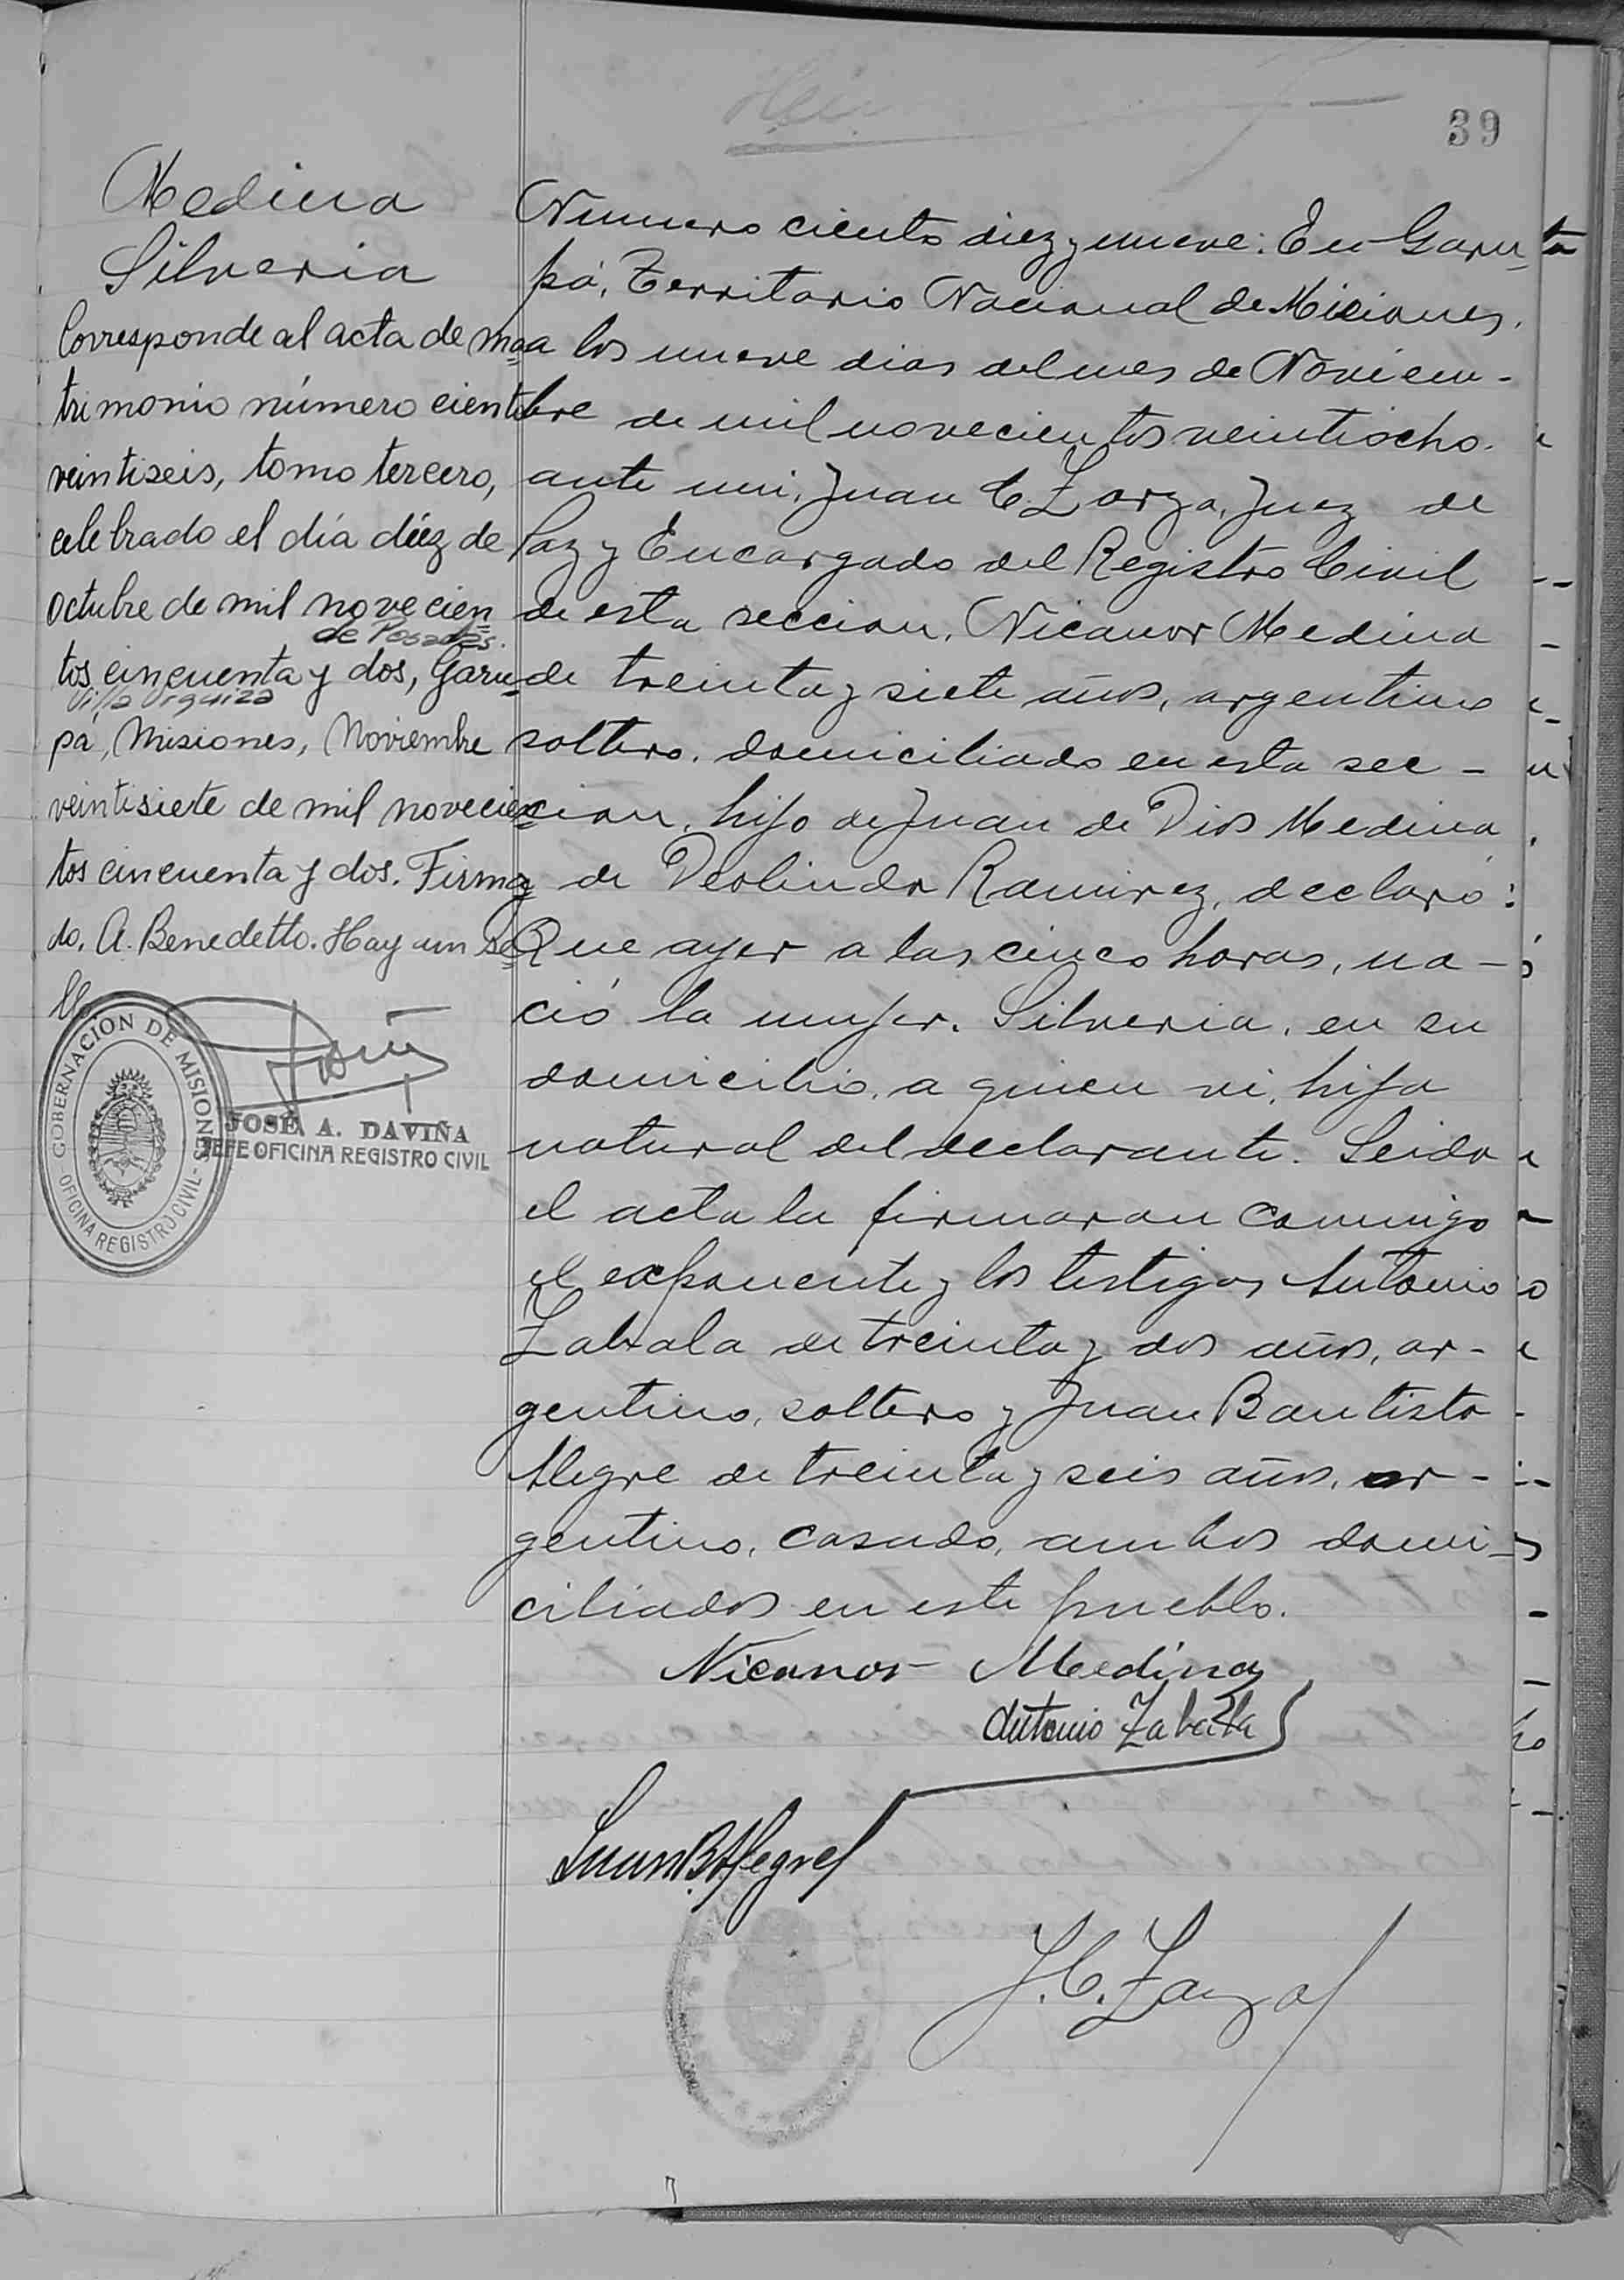 39
Medina
Silveria
Corresponde al acta de ma=
trimonio número ciento
veintiseis, tomo tercero,
celebrado el día diez de
octubre de mil novecien=
de Posadas.
tos cincuenta y dos, Garu=
Villa Urquiza
pá, Misiones, Noviembre
veintisiete de mil novecien=
tos cincuenta y dos. Firma=
do. A. Benedetto. Hay un se=
llo
GOBERNACION DE MISIONES
OFICINA REGISTRO CIVIL
JOSÉ A. DAVIÑA
JEFE OFICINA REGISTRO CIVIL
Numero ciento diez y nueve: En Garu-
pá, Territorio Nacional de Misiones,
a los nueve dias del mes de Noviem-
bre de mil novecientos veintiocho.
ante mi, Juan C. Zarza, Juez de
Paz y Encargado del Registro Civil
de esta seccion, Nicanor Medina
de treinta y siete años, argentino
soltero, domiciliado en esta sec-
cion, hijo de Juan de Dios Medina
de Deolinda Ramirez, declaró:
Que ayer a las cinco horas, na-
ció la mujer. Silveria, en su
domicilio, a quien vi, hija
natural del declarante. Leida
el acta la firmaron conmigo
el exponente y los testigos Antonio
Zabala de treinta y dos años, ar-
gentino, soltero y Juan Bautista
Alegre de treinta y seis años, ar-
gentino, casado, ambos domi-
ciliados en este pueblo.
Nicanor Medina
Antonio Zabala
Juan B. Alegre
J. C. Zarza